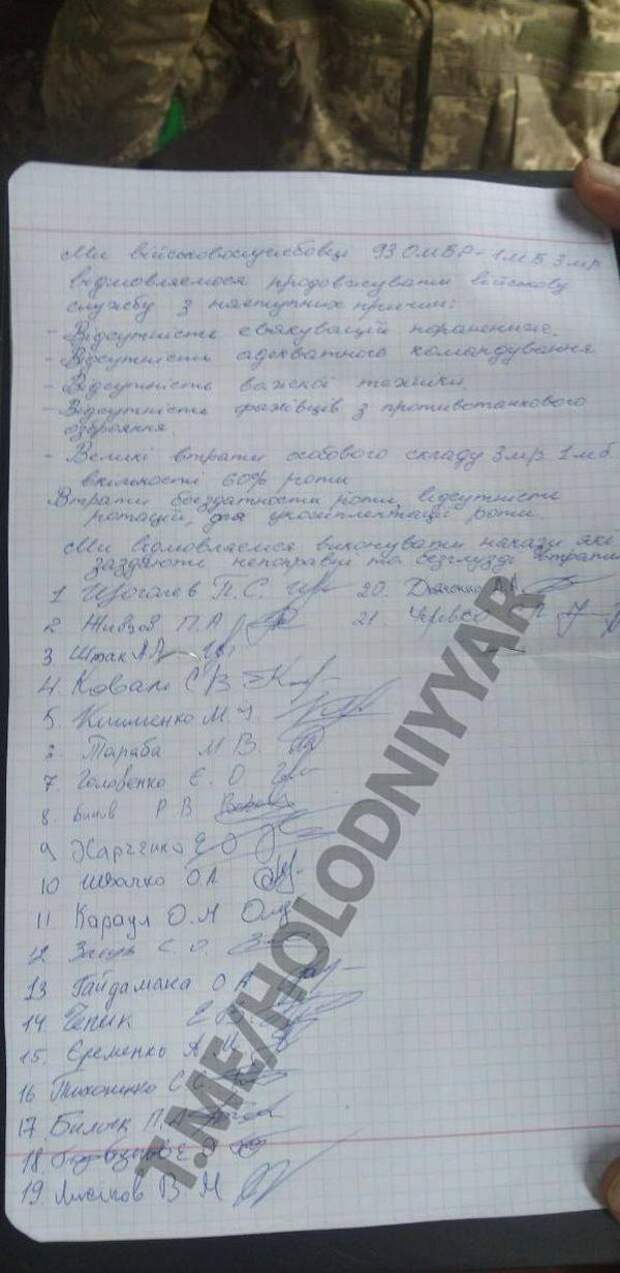 Ми військовослужбовці 93 ОМБР 1МБ 3мр
відмовляємося продовжувати військову
службу з наступних причин:
- Відсутність евакуації
- Відсутність адекватного командування
- Відсутність важкої техніки
- Відсутність фахівців з противотанкового
озброяння.
- Великі втрати особового складу 3мр 1мб
вкількости 60% роти
Втрати боєздатности роти, відсутність
ротації, для роти.
Ми відмовляємося виконувати накази які
та безглузді втрати
1 Щоголев П.С. 20. А.А.
2 П А 21.
3 Шпак А
4. Коваль С В
5. Клименко М.
Тараба М В.
7. Головенко Є. О
8. Р В
9 Харченко Е О
10 Швачко О.А
11 Караул О.М
12 С. О.
13 Гайдамака О А
14. Чепик Е В.
15. Єременко А М
16 Тихоненко С С
17 П.А
18.
19. В М
T.ME/HOLODNIYYAR